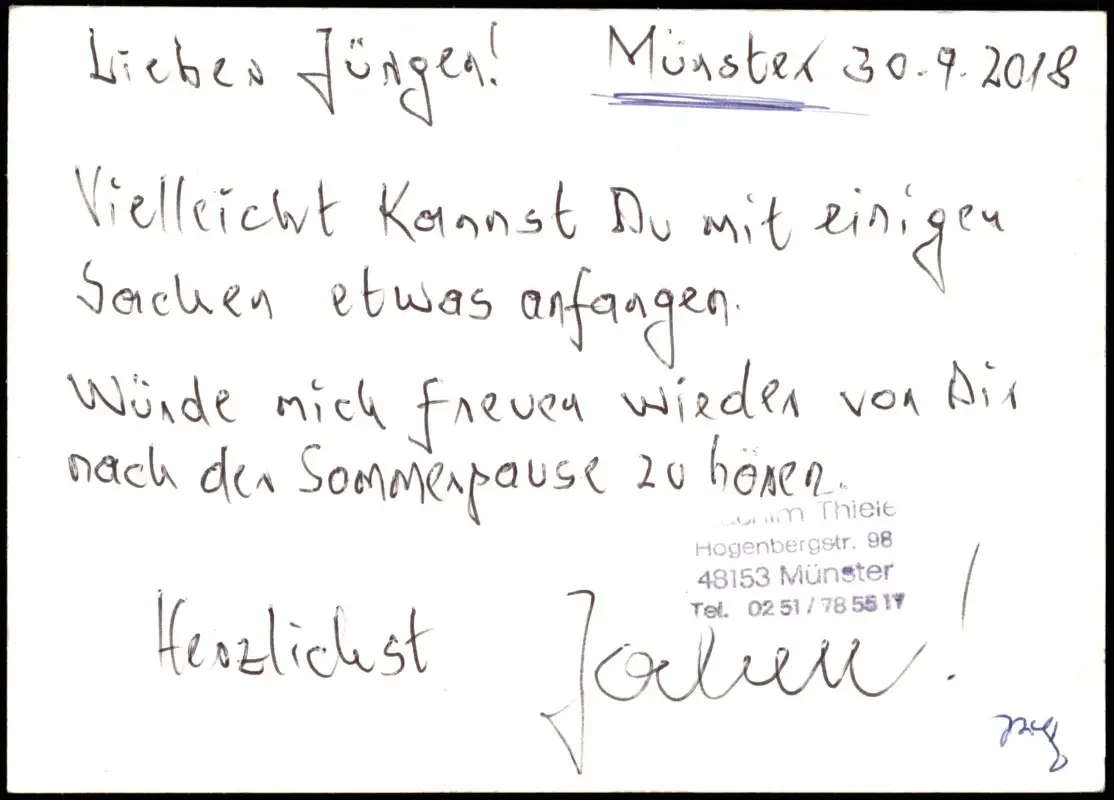 Lieber Jürgen! Münster 30.9.2018
Vielleicht Kannst Du mit einigen
Sachen etwas anfangen.
Würde mich freuen wieder von Dir
nach der Sommerpause zu hören.
Thiele
Hogenbergstr. 98
48153 Münster
Tel. 02 51 / 78 55 17
Herzlichst Jochen!